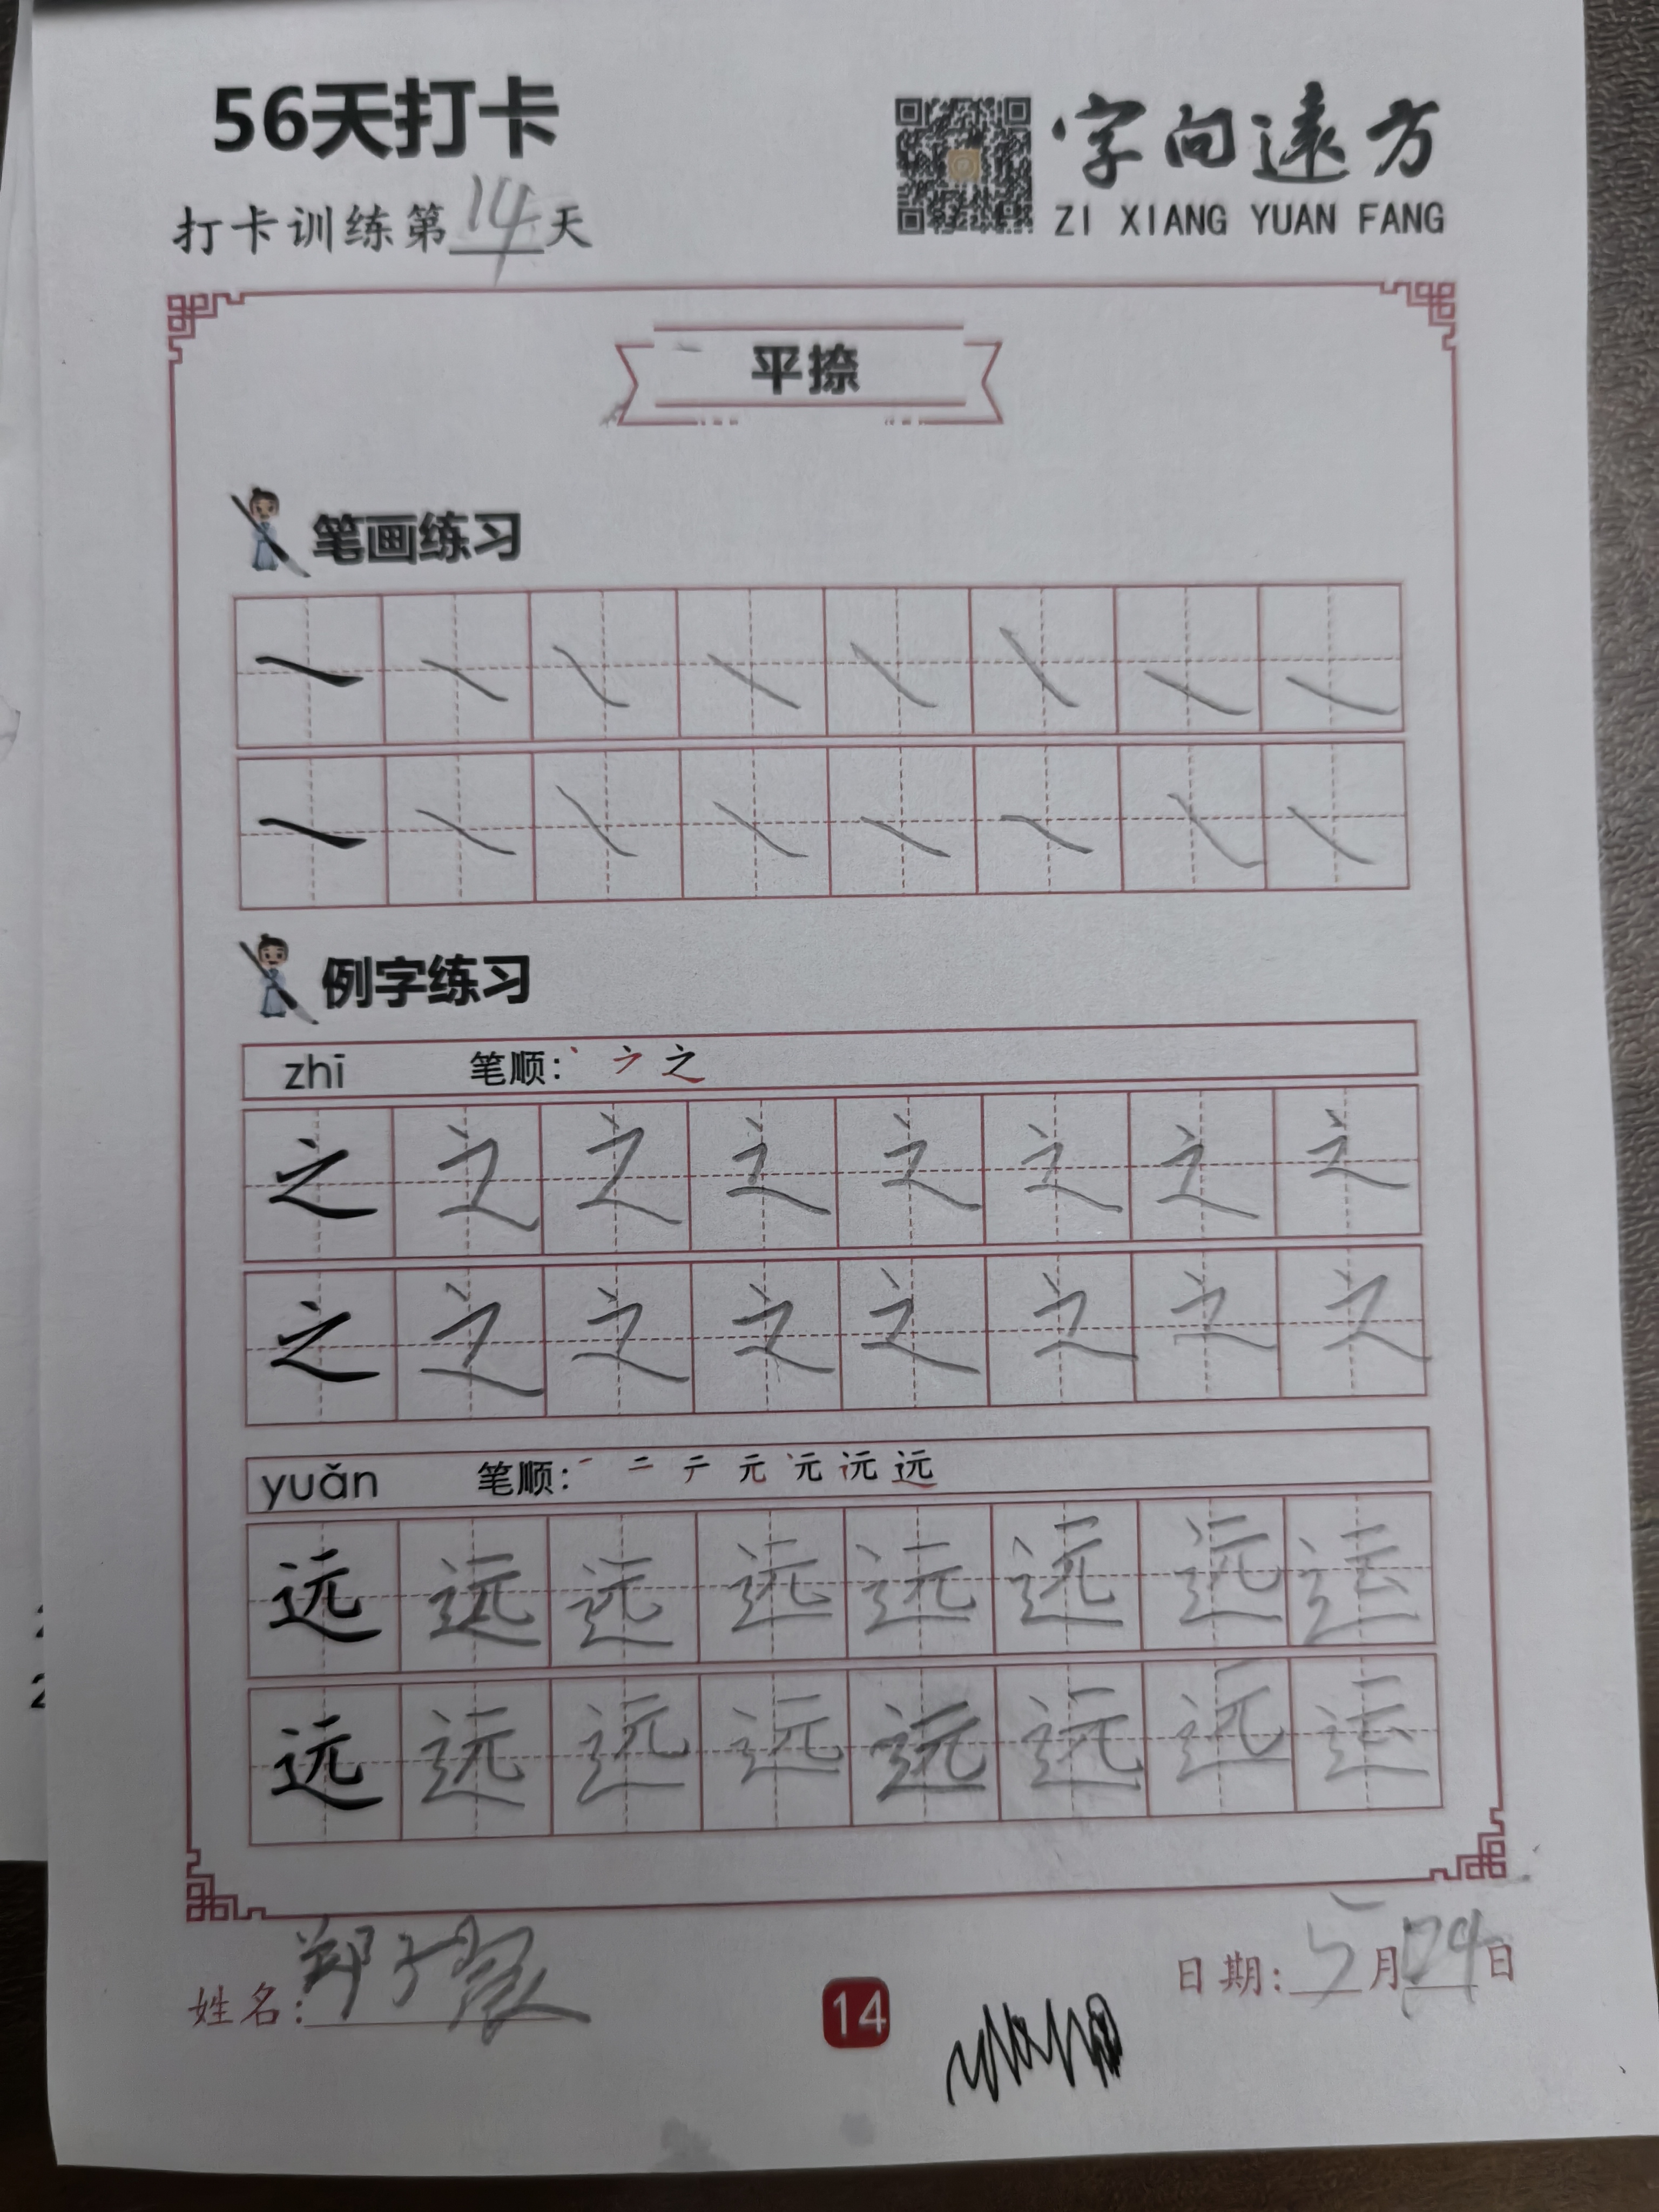 56天打卡
字向遠方
ZI XIANG YUAN FANG
打卡训练第14天
平捺
笔画练习
例字练习
zhī 笔顺: 丶 之
之 之 之 之 之 之 之 之
之 之 之 之 之 之 之 之
yuǎn 笔顺: 一 二 元 远
远 远 远 远 远 远 远 远
远 远 远 远 远 远 远 远
姓名: 郑子
14
日期: 5月 日